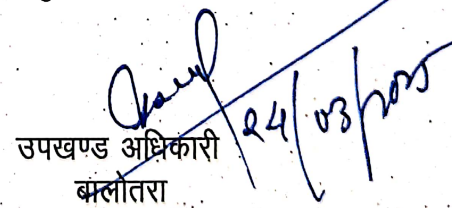 24/03/2025
उपखण्ड अधिकारी
बालोतरा